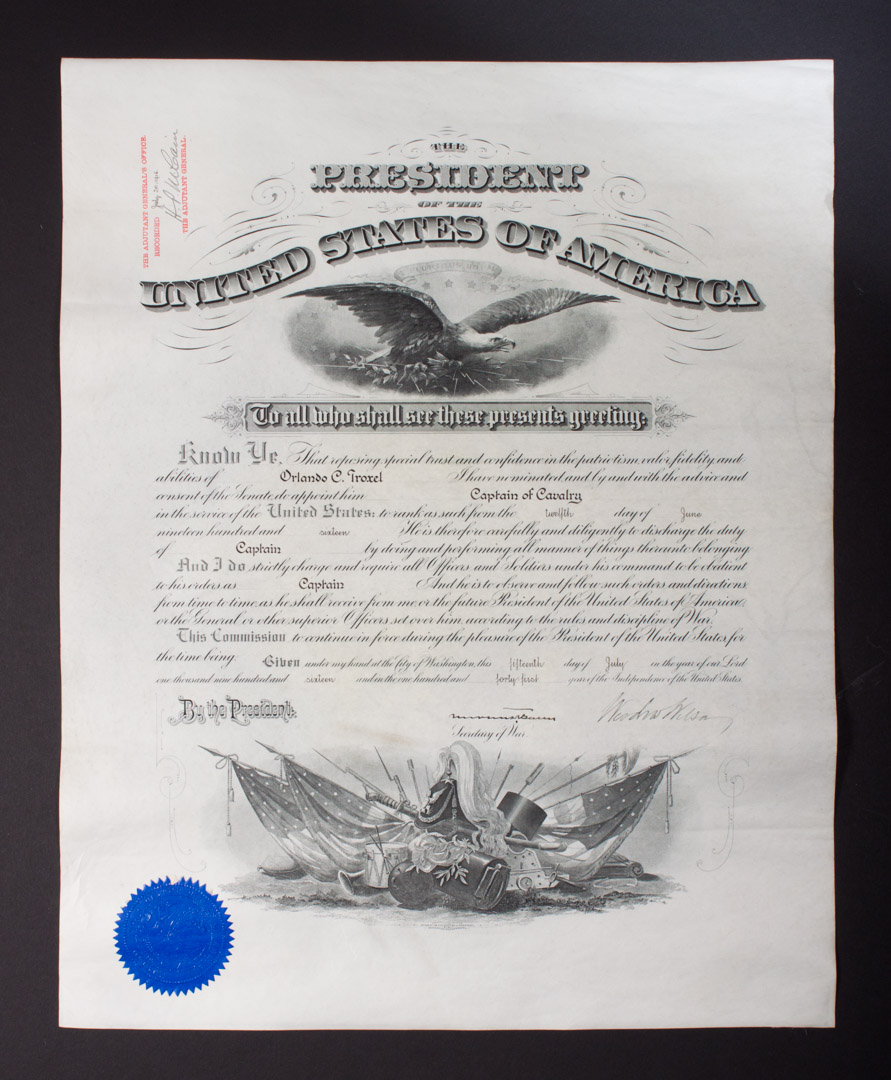 THE ADJUTANT GENERAL'S OFFICE.
RECORDED July 20 1916
H P McCain
THE ADJUTANT GENERAL.
THE
PRESIDENT
OF THE
UNITED STATES OF AMERICA
To all who shall see these presents greeting:
Know Ye, That reposing special trust and confidence in the patriotism, valor, fidelity and
abilities of Orlando C. Troxel I have nominated and by and with the advice and
consent of the Senate, do appoint him Captain of Cavalry
in the service of the United States: to rank as such from the twelfth day of June
nineteen hundred and sixteen He is therefore carefully and diligently to discharge the duty
of Captain by doing and performing all manner of things thereunto belonging
And I do strictly charge and require all Officers and Soldiers under his command to be obedient
to his orders as Captain And he is to observe and follow such orders and directions
from time to time, as he shall receive from me, or the future President of the United States of America,
or the General or other superior Officers set over him, according to the rules and discipline of War.
This Commission to continue in force during the pleasure of the President of the United States, for
the time being. Given under my hand at the City of Washington, this fifteenth day of July in the year of our Lord
one thousand nine hundred and sixteen and in the one hundred and forty-first year of the Independence of the United States.
By the President:
Woodrow Wilson
Secretary of War.